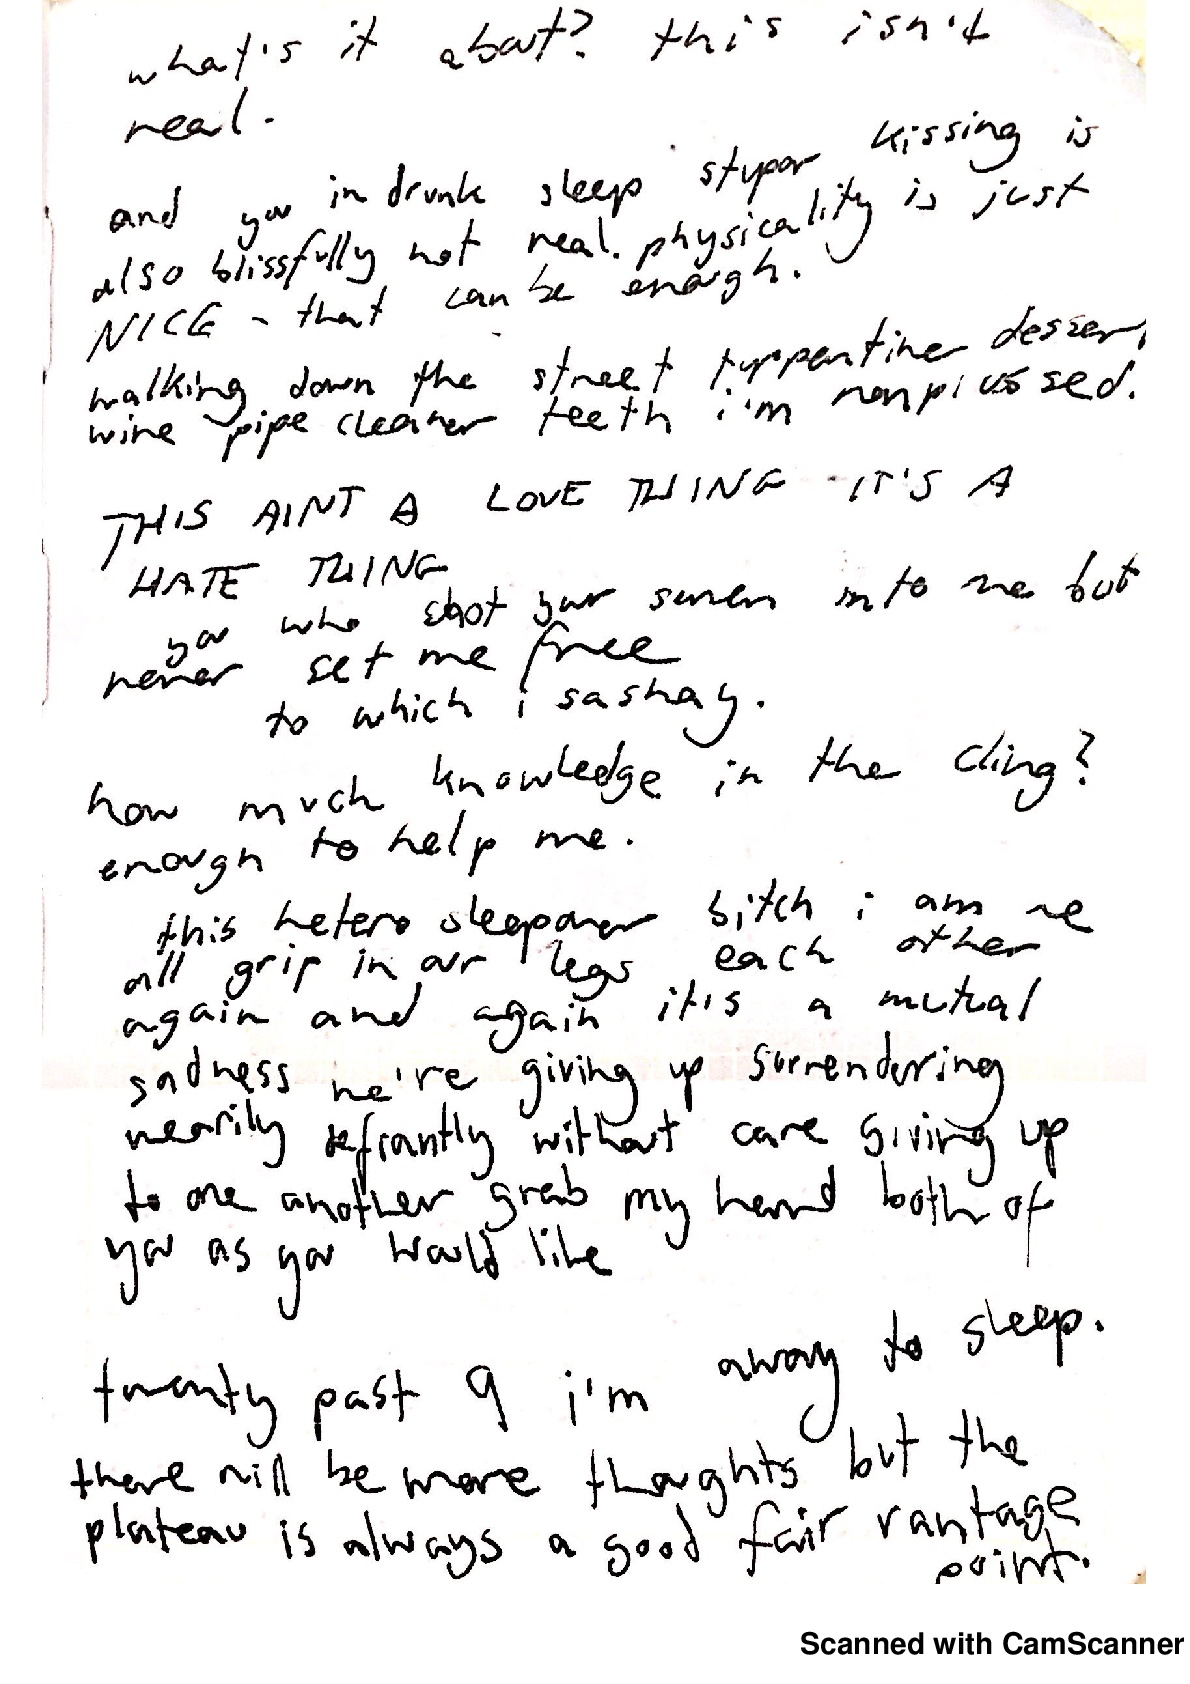 what's it about? this isn't
real.
and you in drunk sleep stupor kissing is
also blissfully not real. physicality is just
NICE - that can be enough.
walking down the street turppentine dessert
wine pipe cleaner teeth i'm nonplussed.
THIS AINT A LOVE THING IT'S A
HATE THING
you who shot your semen into me but
never set me free
to which i sashay.
how much knowledge in the cling?
enough to help me.
this hetero sleepover bitch i am we
all grip in our legs each other
again and again it's a mutual
sadness we're giving up surrendering
wearily defiantly without care giving up
to one another grab my hand both of
you as you would like
twenty past 9 i'm away to sleep.
there will be more thoughts but the
plateau is always a good fair vantage
point.
Scanned with CamScanner